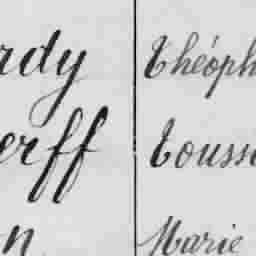 rdy Théoph
erff Tousse
n Marie